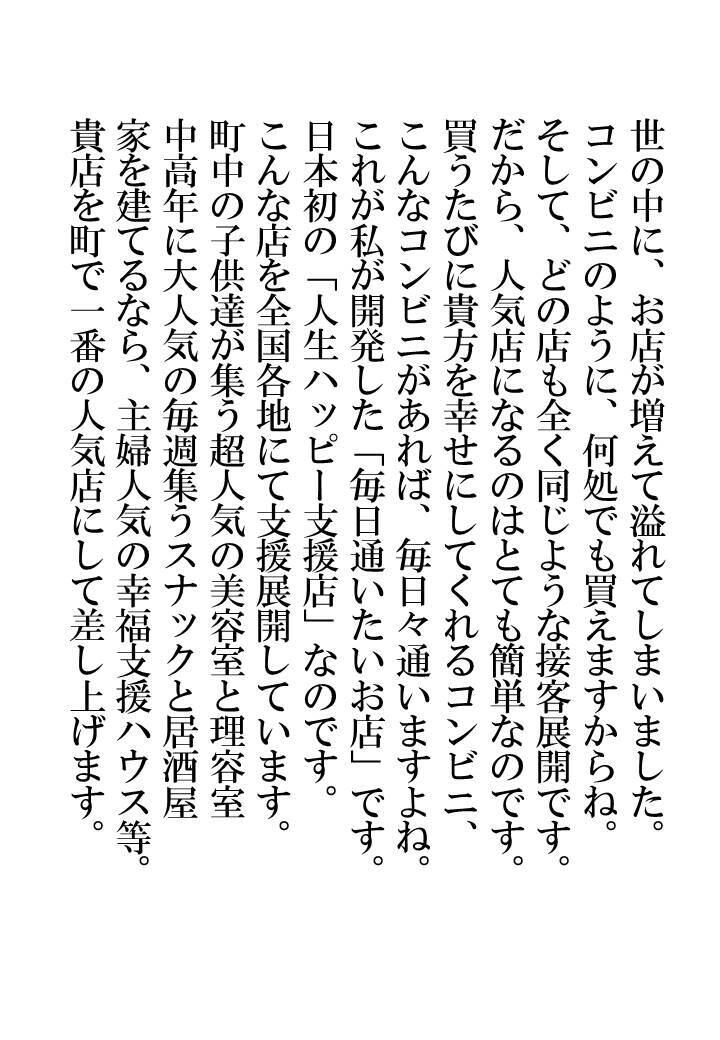 世の中に、お店が増えて溢れてしまいました。
コンビニのように、何処でも買えますからね。
そして、どの店も全く同じような接客展開です。
だから、人気店になるのはとても簡単なのです。
買うたびに貴方を幸せにしてくれるコンビニ、
こんなコンビニがあれば、毎日々通いますよね。
これが私が開発した「毎日通いたいお店」です。
日本初の「人生ハッピー支援店」なのです。
こんな店を全国各地にて支援展開しています。
町中の子供達が集う超人気の美容室と理容室
中高年に大人気の毎週集うスナックと居酒屋
家を建てるなら、主婦人気の幸福支援ハウス等。
貴店を町で一番の人気店にして差し上げます。